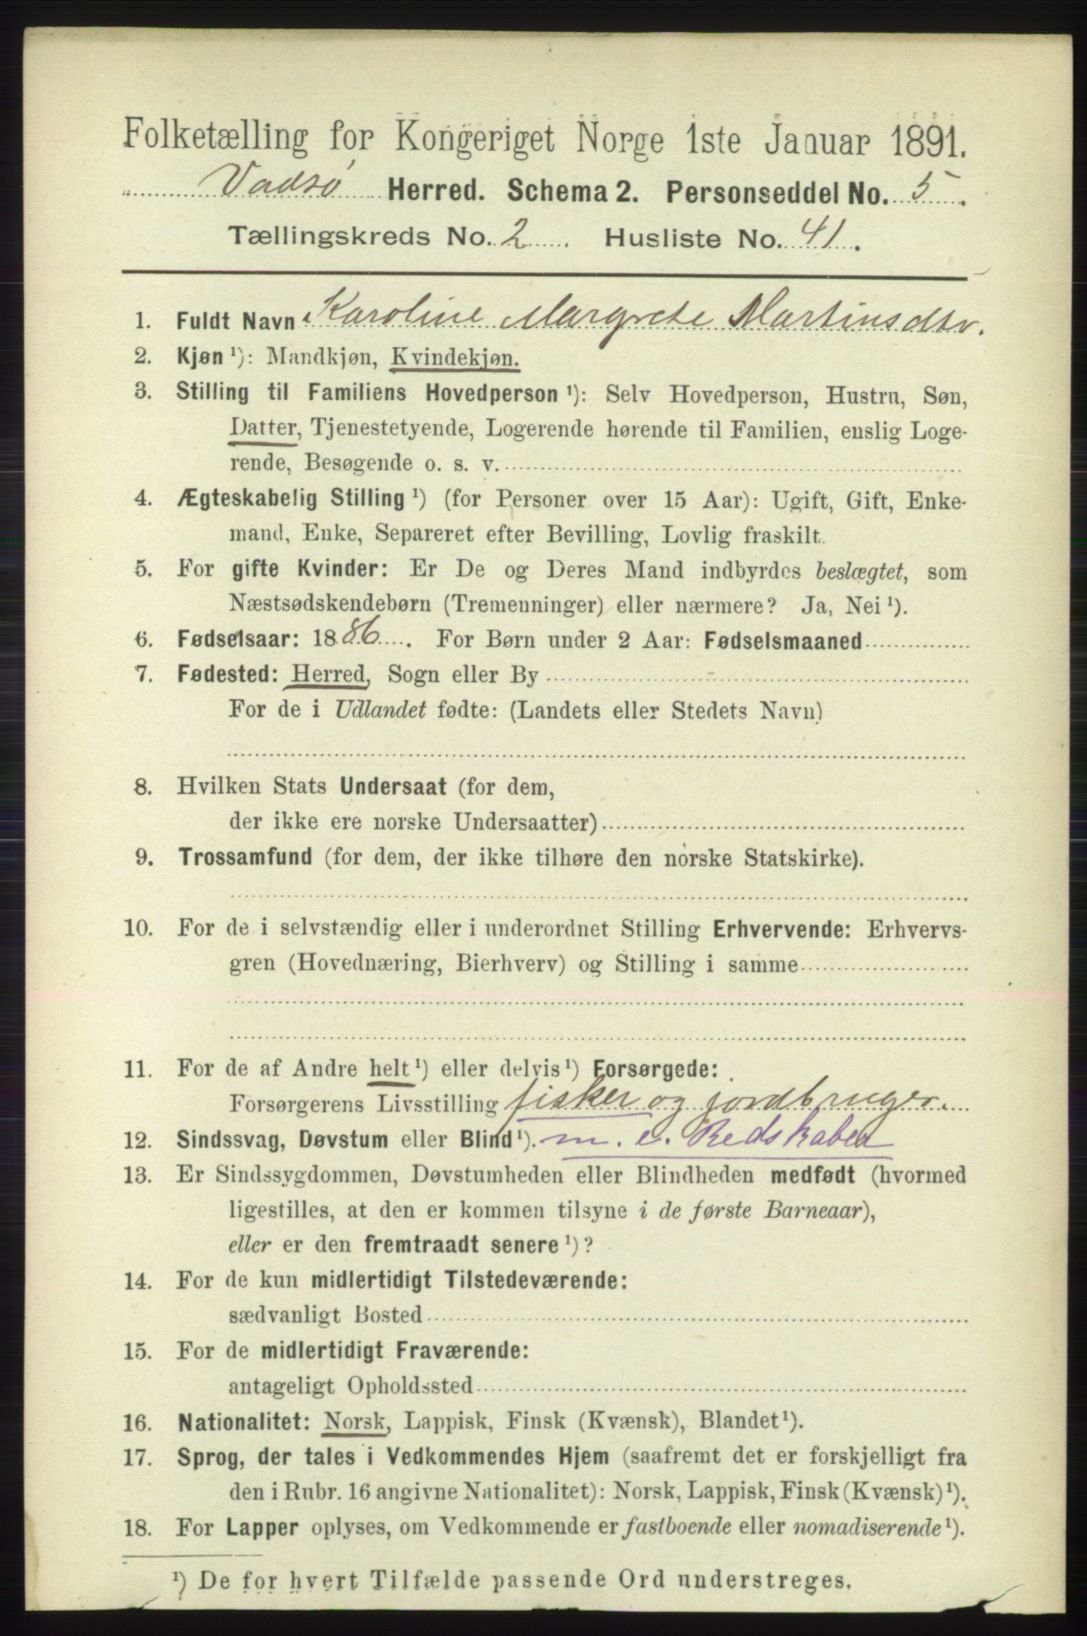 Folketælling for Kongeriget Norge 1ste Januar 1891.
Vadsø Herred. Schema 2. Personseddel No. 5.
Tællingskreds No. 2. Husliste No. 41.
1. Fuldt Navn Karoline Margrete Martinsdtr.
2. Kjøn ¹): Mandkjøn, Kvindekjøn.
3. Stilling til Familiens Hovedperson ¹): Selv Hovedperson, Hustru, Søn,
Datter, Tjenestetyende, Logerende hørende til Familien, enslig Loge-
rende, Besøgende o. s. v.
4. Ægteskabelig Stilling ¹) (for Personer over 15 Aar): Ugift, Gift, Enke-
mand, Enke, Separeret efter Bevilling, Lovlig fraskilt.
5. For gifte Kvinder: Er De og Deres Mand indbyrdes beslægtet, som
Næstsødskendebørn (Tremenninger) eller nærmere? Ja, Nei ¹).
6. Fødselsaar: 1886. For Børn under 2 Aar: Fødselsmaaned
7. Fødested: Herred, Sogn eller By
For de i Udlandet fødte: (Landets eller Stedets Navn)
8. Hvilken Stats Undersaat (for dem,
der ikke ere norske Undersaatter)
9. Trossamfund (for dem, der ikke tilhøre den norske Statskirke).
10. For de i selvstændig eller i underordnet Stilling Erhvervende: Erhvervs-
gren (Hovednæring, Bierhverv) og Stilling i samme
11. For de af Andre helt ¹) eller delvis ¹) Forsørgede:
Forsørgerens Livsstilling fisker og jordbruger.
12. Sindssvag, Døvstum eller Blind ¹). m. e. Redskaber
13. Er Sindssygdommen, Døvstumheden eller Blindheden medfødt (hvormed
ligestilles, at den er kommen tilsyne i de første Barneaar),
eller er den fremtraadt senere ¹)?
14. For de kun midlertidigt Tilstedeværende:
sædvanligt Bosted
15. For de midlertidigt Fraværende:
antageligt Opholdssted
16. Nationalitet: Norsk, Lappisk, Finsk (Kvænsk), Blandet ¹).
17. Sprog, der tales i Vedkommendes Hjem (saafremt det er forskjelligt fra
den i Rubr. 16 angivne Nationalitet): Norsk, Lappisk, Finsk (Kvænsk) ¹).
18. For Lapper oplyses, om Vedkommende er fastboende eller nomadiserende ¹).
¹) De for hvert Tilfælde passende Ord understreges.